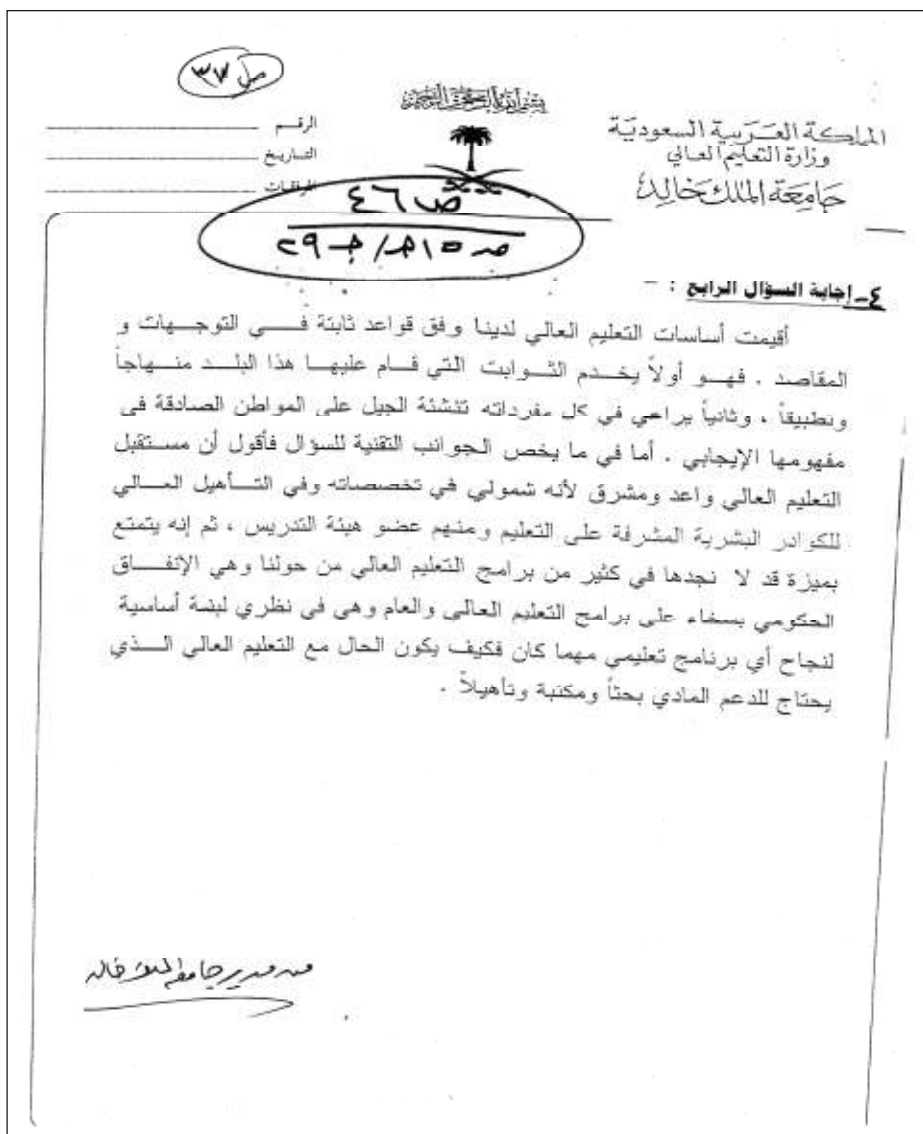 ص ٣٧
بسم الله الرحمن الرحيم
المملكة العربية السعودية
وزارة التعليم العالي
جامعة الملك خالد
الرقم
التاريخ
المرفقات
ص ٤٦
ص ١٥هـ/ جـ ٢٩
٤ـ إجابة السؤال الرابع : –
أقيمت أساسات التعليم العالي لدينا وفق قواعد ثابتة فـــي التوجـهات و
المقاصد . فهــو أولاً يخـدم الثــوابت التي قــام عليهــا هذا البلــد منــهاجاً
وتطبيقاً ، وثانياً يراعي في كل مفرداته تنشئة الجيل على المواطن الصادقة في
مفهومها الإيجابي . أما في ما يخص الجوانب التقنية للسؤال فأقول أن مسـتقبل
التعليم العالي واعد ومشرق لأنه شمولي في تخصصاته وفي التــأهيل العــالي
للكوادر البشرية المشرفة على التعليم ومنهم عضو هيئة التدريس ، ثم إنه يتمتع
بميزة قد لا نجدها في كثير من برامج التعليم العالي من حولنا وهي الإنفــاق
الحكومي بسخاء على برامج التعليم العالي والعام وهي في نظري لبنة أساسية
لنجاح أي برنامج تعليمي مهما كان فكيف يكون الحال مع التعليم العالي الــذي
يحتاج للدعم المادي بحثاً ومكتبة وتأهيلاً .
من مدير جامعة الملك خالد